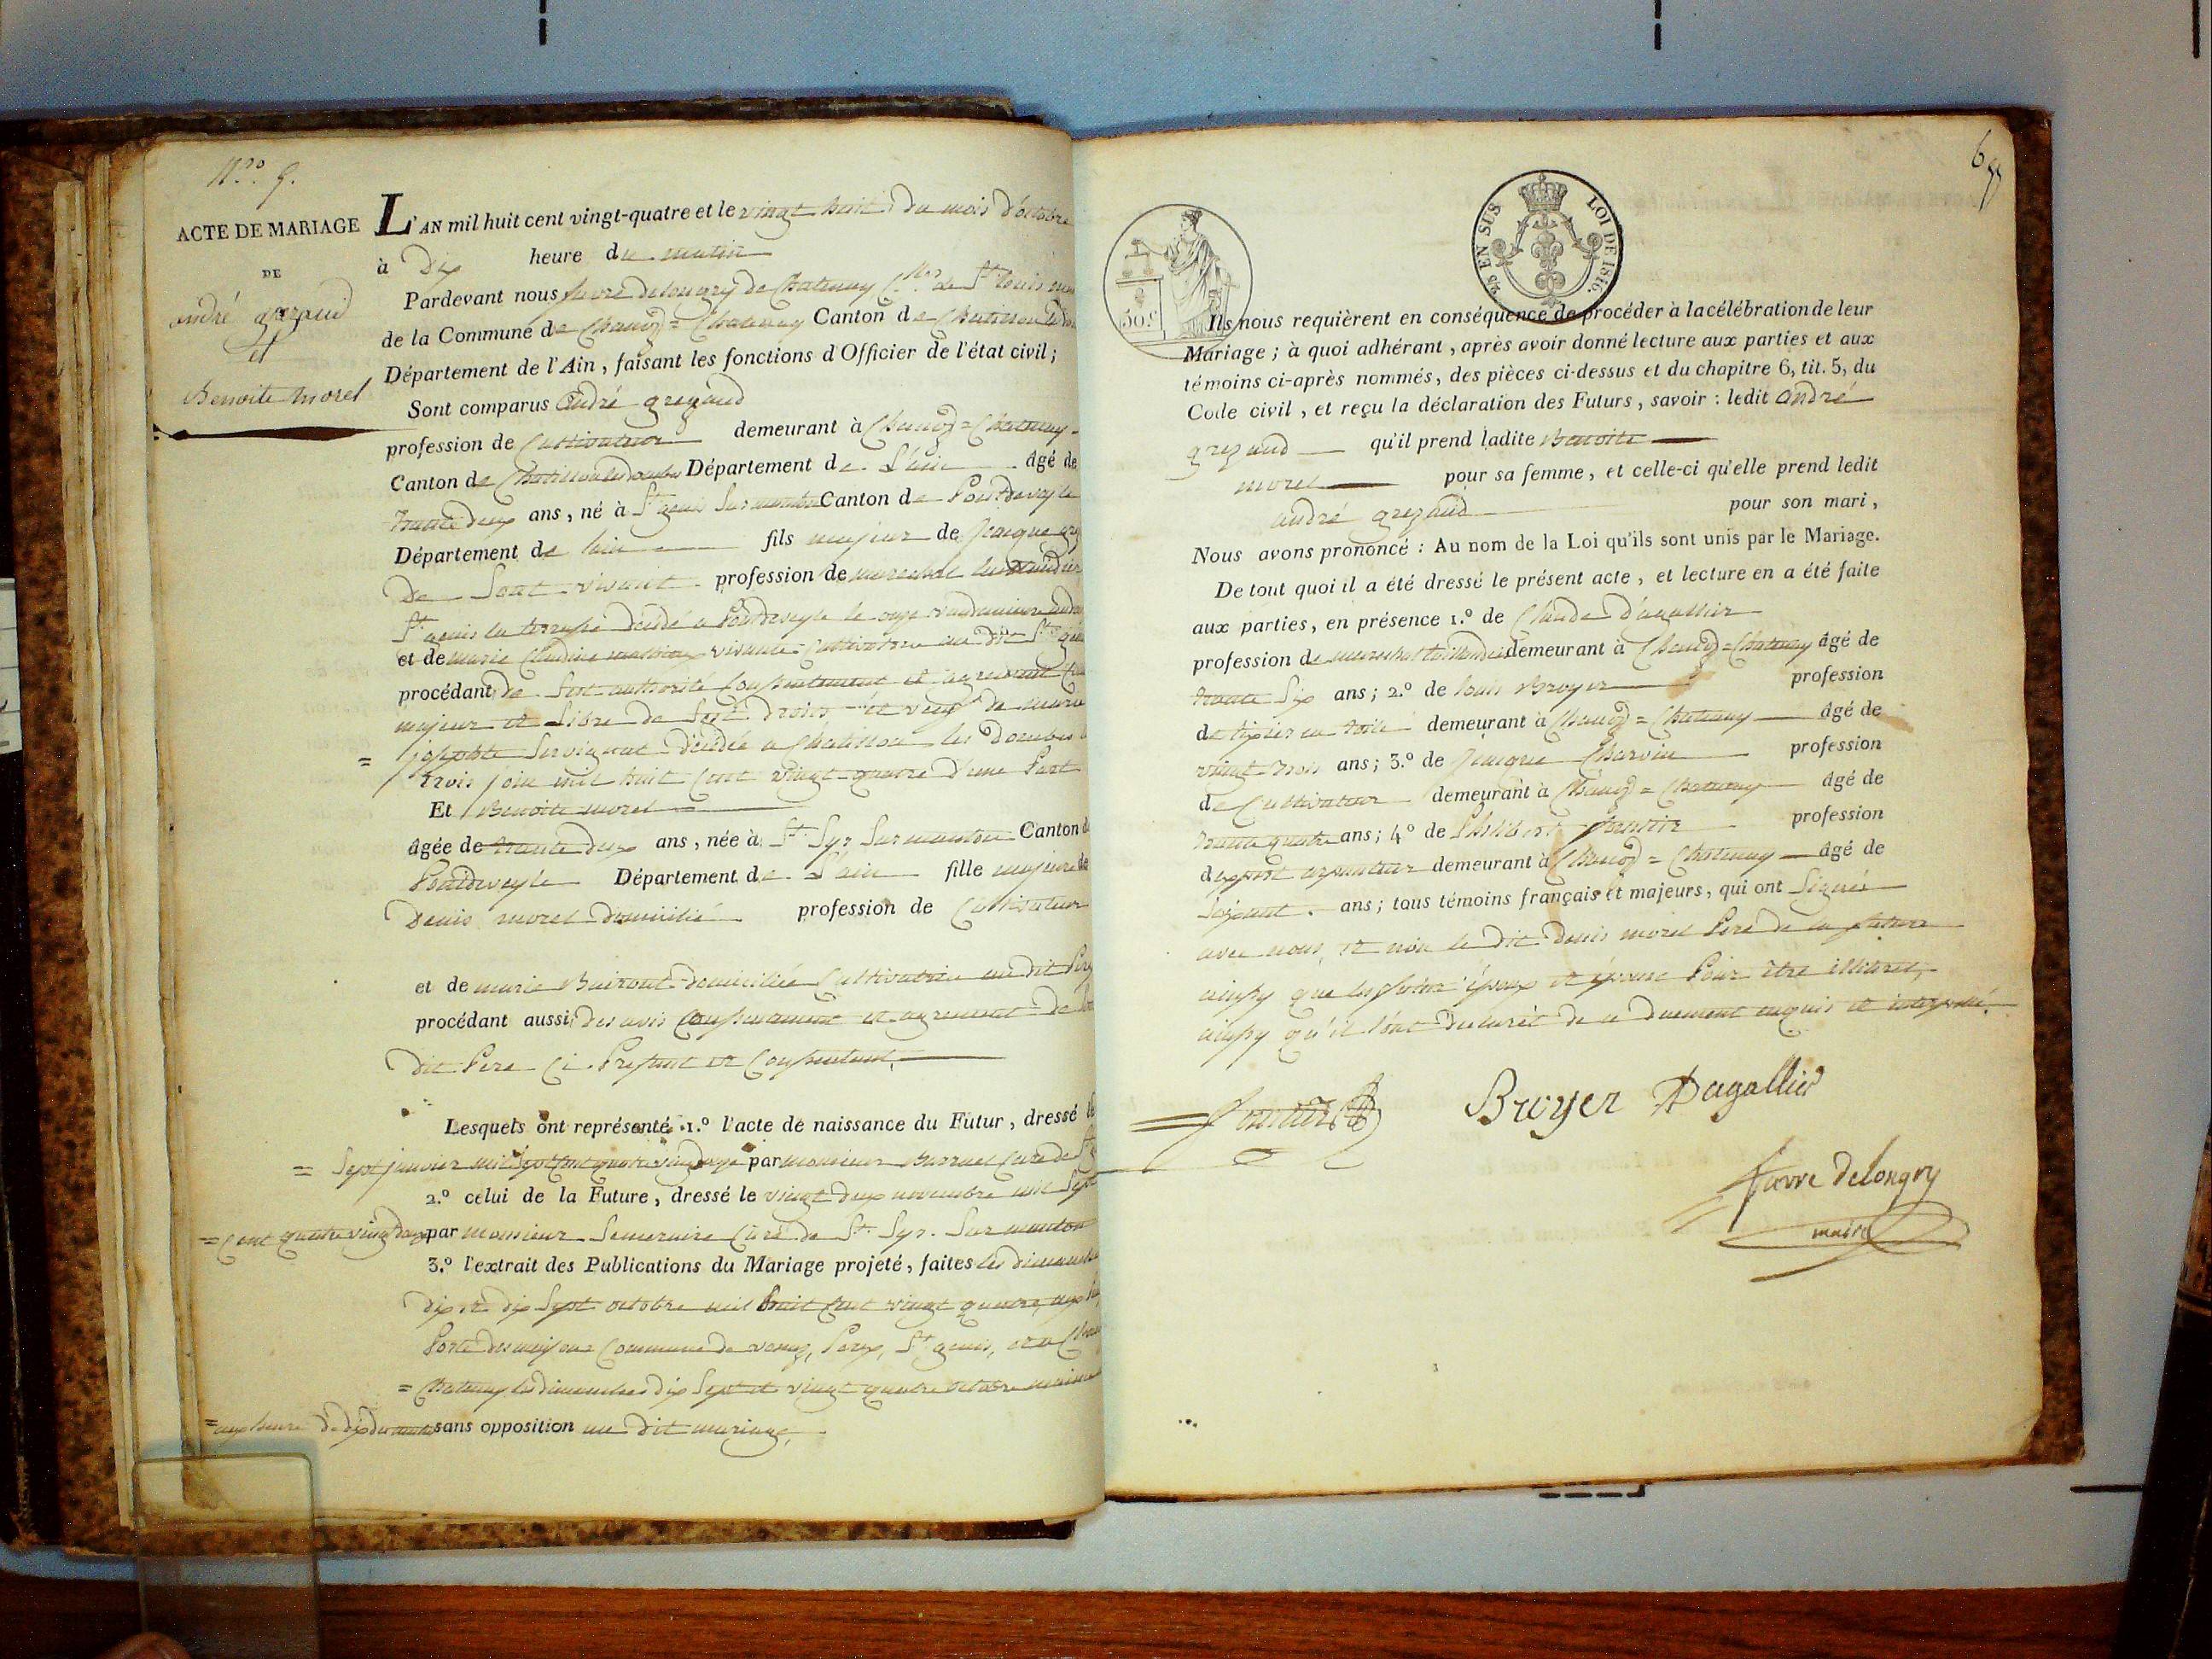 N.ro 9.
ACTE DE MARIAGE
DE
andré grezaud
et
Benoite morel
L'AN mil huit cent vingt-quatre et le vingt huit du mois d'octobre
à Dix heure du matin
Pardevant nous favre delongry de Chatenay de St louis
de la Commune de Chanoz = Chatenay Canton de Chatillon
Département de l'Ain, faisant les fonctions d'Officier de l'état civil;
Sont comparus andré grezaud
profession de Cultivateur demeurant à Chanoz = Chatenay
Canton de Chatillon les dombes Département de L'ain âgé de
trante deux ans, né à St genis Sur menton Canton de Pontdeveyle
Département de lain fils majeur de Jacque
De Sont vivant profession de marechal
St genis decidé a Pontdeveyle le onze
et de marie Claudine vivante Cultivatrice au dit St
procédant de Sont authorité Consentement et agrement
majeur et Libre de Sest droits et veuf de marie
= josephte Servignat décidée a Chatillon les Dombes
trois join mil huit Cent vingt quatre d'une Part
Et Benoite morel
âgée de trante deux ans, née à St Syr Sur menton Canton de
Pontdeveyle Département de L'ain fille majeure de
Denis morel domicilié profession de Cultivateur
et de marie domiciliée Cultivatrice au dit
procédant aussi des avis Consentement et agrement de
dit Pere Ci Present et Consentent,
Lesquels ont représenté 1.º l'acte de naissance du Futur, dressé le
= Sept janvier mil Sept Cent quatre vingt par monsieur Curé de St
2.º celui de la Future, dressé le vingt deux novembre mil Sept
= Cent quatre vingt par monsieur Curé de St. Syr. Sur menton
3.º l'extrait des Publications du Mariage projeté, faites les dimanche
dix et dix Sept octobre mil huit Cent vingt quatre, aux
Porte des maisons Commune de Perex, St genis, et a
= Chatenay les dimanches dix Sept et vingt quatre octobre
= aux heure de dix du matin sans opposition au dit mariage,
6
25 EN SUS LOI DE 1816.
50.c
Ils nous requièrent en conséquence de procéder à la célébration de leur
Mariage; à quoi adhérant, après avoir donné lecture aux parties et aux
témoins ci-après nommés, des pièces ci-dessus et du chapitre 6, tit. 5, du
Code civil, et reçu la déclaration des Futurs, savoir: ledit andré
grezaud qu'il prend ladite Benoite
morel pour sa femme, et celle-ci qu'elle prend ledit
andré grezaud pour son mari,
Nous avons prononcé: Au nom de la Loi qu'ils sont unis par le Mariage.
De tout quoi il a été dressé le présent acte, et lecture en a été faite
aux parties, en présence 1.º de Claude d'agallier
profession de marechal taillandier demeurant à Chanoz = Chatenay âgé de
trante Six ans; 2.º de louis Broyer profession
de tixier en toile demeurant à Chanoz = Chatenay âgé de
vingt trois ans; 3.º de Jacque Charvin profession
de Cultivateur demeurant à Chanoz = Chatenay âgé de
trante quatre ans; 4º de Philibert profession
d'expert arpenteur demeurant à Chanoz = Chatenay âgé de
Soixante ans; tous témoins français et majeurs, qui ont Signés
avec nous, et non le dit Denis morel Pere de la future
ainsy que les futur époux et épouse Pour être illitéret,
ainsy qu'il l'ont declaret de ce duement enquis et interpellé.
Broyer Dagallier
favre delongry
maire